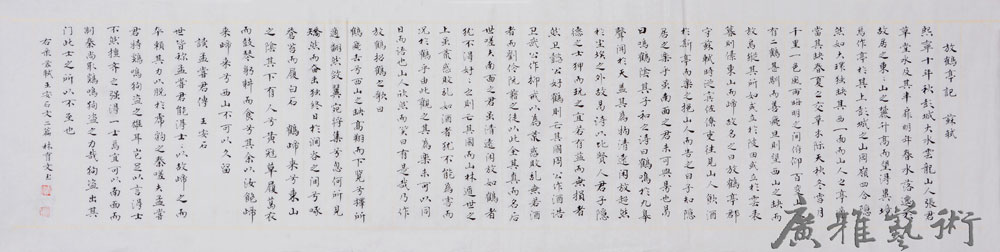 放鶴亭記 蘇軾
熙寧十年秋彭城大水雲龍山人張君之
草堂水及其半扉明年春水落遷於
故居之東東山之麓升高而望得異境
焉作亭於其上彭城之山岡嶺四合隱
然如大環獨缺其西一面而山人之亭適
當其缺春夏之交草木際天秋冬雪月
千里一色風雨晦明之間俯仰百變山人
有二鶴甚馴而善飛旦則望西山之缺而
放焉縱其所如或立於陂田或翔於雲表
暮則傃東山而歸故名之曰放鶴亭郡
守蘇軾時從賓佐僚吏往見山人飲酒
於斯亭而樂之挹山人而告之曰子知隱
居之樂乎雖南面之君未可與易也易
曰鳴鶴在陰其子和之詩曰鶴鳴于九皋
聲聞于天蓋其為物清遠閑放超然
於塵埃之外故易詩以比賢人君子隱
德之士狎而玩之宜若有益而無損者
然衛懿公好鶴則亡其國周公作酒誥
衛武公作抑戒以為荒惑敗亂無若酒
者而劉伶阮籍之徒以此全其真而名后
世嗟夫南面之君雖清遠閑放如鶴者
猶不得好好之則亡其國而山林遁世之
士雖荒惑敗亂如酒者猶不能為害而
況於鶴乎由此觀之其為樂未可以同
日而語也山人欣然而笑曰有是哉乃作
放鶴招鶴之歌曰
鶴飛去兮西山之缺高翔而下覽兮擇所
適翻然斂翼宛將集兮忽何所見
矯然而獨終日於澗谷之間兮啄
蒼苔而履白石 鶴歸來兮東山
之陰其下有人兮黃冠草履葛衣
而鼓琴躬耕而食兮其餘以汝飽歸
來歸來兮西山不可以久留
讀孟嘗君傳 王安石
世皆稱孟嘗君能得士士以故歸之而
卒賴其力以脫於虎豹之秦嗟夫孟嘗
君特雞鳴狗盜之雄耳豈足以言得士
不然擅齊之強得一士焉宜可以南面而
制秦尚取雞鳴狗盜之力哉狗盜出其
門此士之所以不至也
右录蘇軾王安石文二篇
廣雅藝術